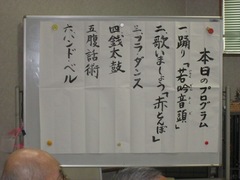 本日のプログラム
一踊り「若吟音頭」
二歌いましょう「赤とんぼ」
三フラダンス
四銭太鼓
五腹話術
六ハンドベル